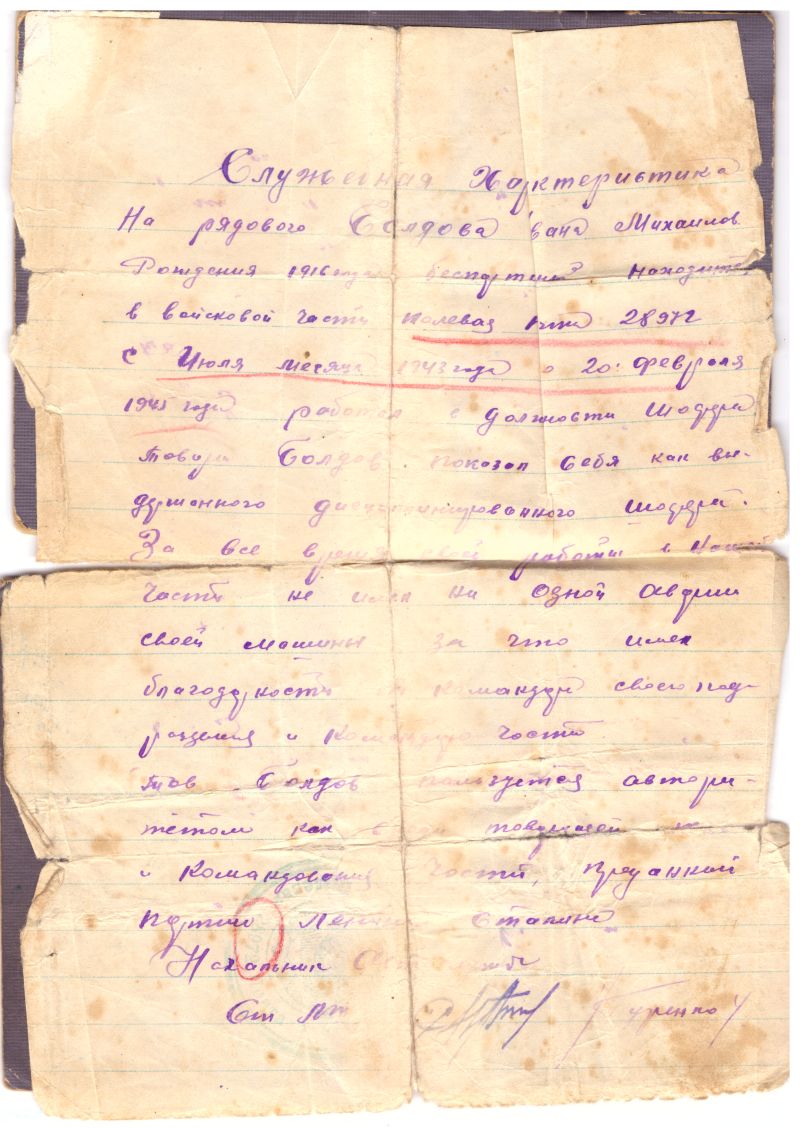 Служебная Харктеристика
На рядового Болдова Ивана Михайлов
Рождения 1916 года беспартий находится
в войсковой части полевая почта 28972
с Июля месяца 1943 года по 20: Февраля
1945 года работал в должности Шофера
товарищ Болдов показал себя как вы-
держенного дисциплинированного шофера.
За все время своей работы в нашей
части не имел ни одной аварии
своей машины за что имел
благодарности от командира своего под-
разделения и Командира части
тов Болдов пользуется автори-
тетом как товарищей
и Командования Части, Преданный
партии Ленина Сталина
Начальник
Ст Лт Туренко